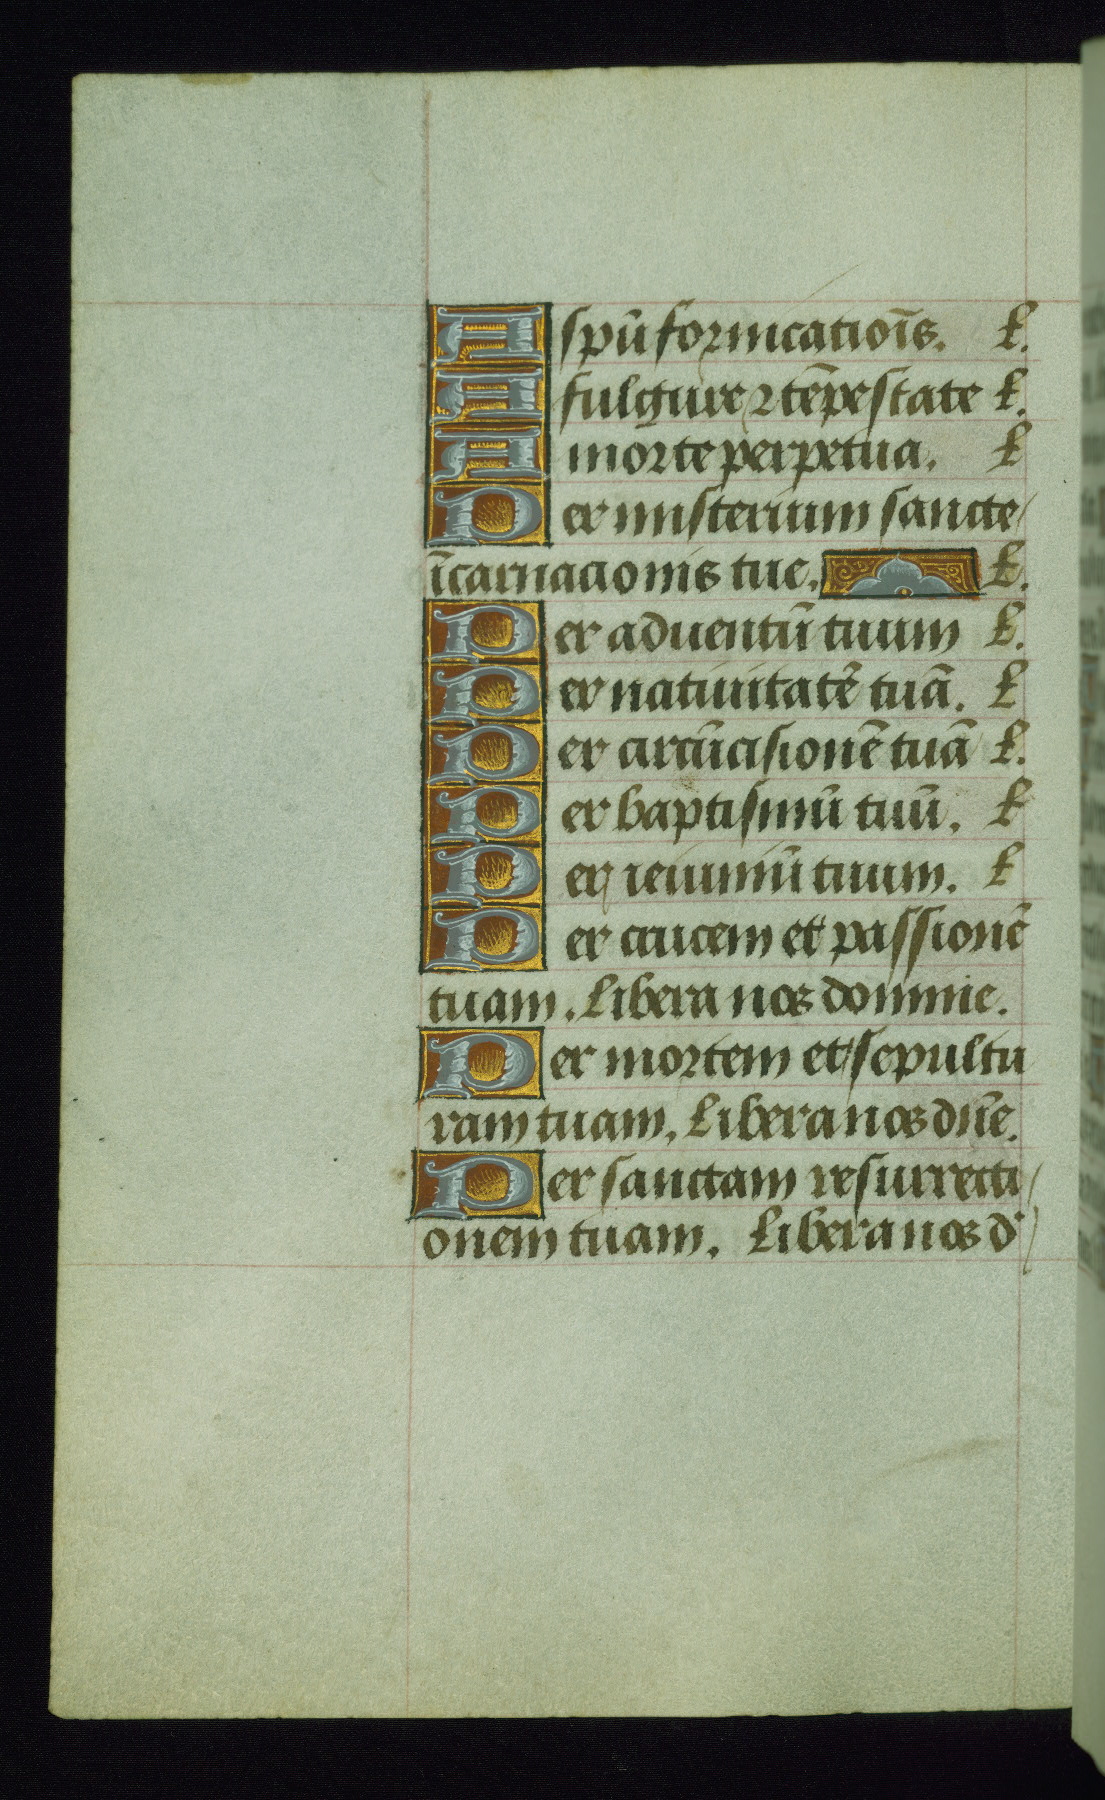 A spū fornicatiōis. L.
A fulgure ⁊ tēpestate L.
A morte perpetua. L
Per misterium sancte
īcarnacionis tue. L.
Per aduentū tuum L.
Per natiuitatē tuā. L
Per circūcisionē tuā L.
Per baptismū tuū. L
Per ieiuniū tuum. L
Per crucem et passionē
tuam. Libera nos domine.
Per mortem et sepultu
ram tuam. Libera nos dn̄e.
Per sanctam resurrecti
onem tuam. Libera nos d